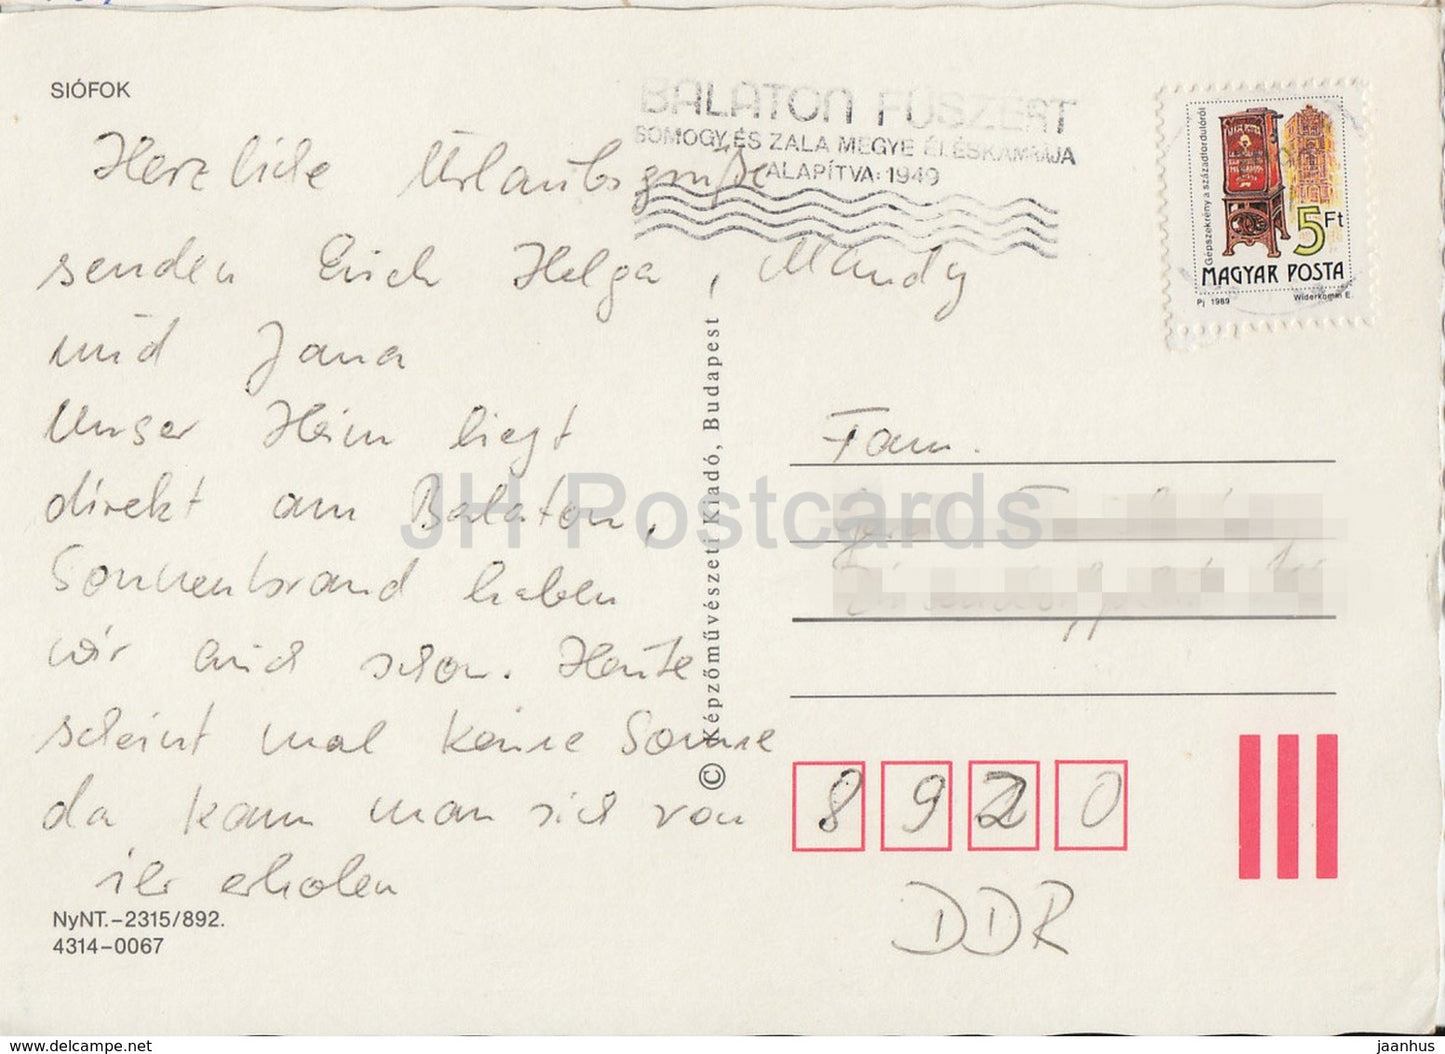 SIÓFOK
BALATON FŰSZÉRT
SOMOGY ÉS ZALA MEGYE ÉLÉSKAMRÁJA
ALAPÍTVA: 1949
Gépszekrény a századfordulóról
5 Ft
MAGYAR POSTA
Pj 1989 Widerkomm E.
Herzliche Urlaubsgrüße
senden Erich Helga, Mandy
und Jana
Unser Heim liegt
direkt am Balaton,
Sonnenbrand haben
wir auch schon. Heute
scheint mal keine Sonne
da kann man sich von
ihr erholen
NyNT.-2315/892.
4314-0067
© Képzőművészeti Kiadó, Budapest
Fam.
8920
DDR
JH Postcards
www.delcampe.net
jaanhus